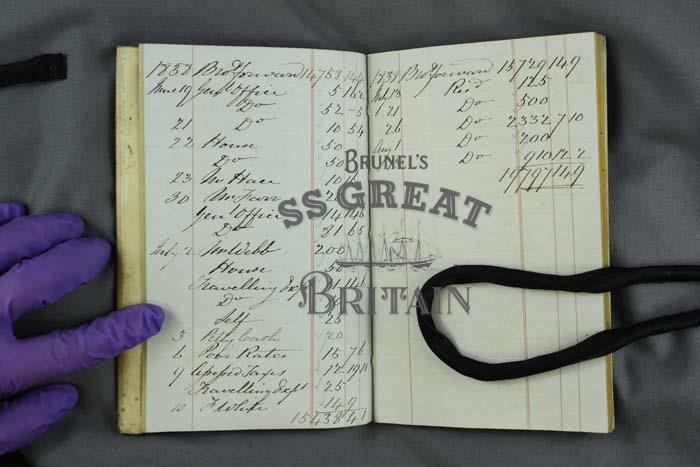 1838 Bro.t forward 14758 14 4
June 19 Gen Office 5 16 2
Do 52
21 Do 10 5 4
22 House 50
Do 50
23 Mr
30 Mr
Gen Office 14 14 6
Do 81 6 5
July 2 Mr Webb 200
House 50
Travelling Exps
Do
Self 25
3 Petty Cash 20
6 Poor Rates 15 7 6
9 Assessed Taxes 12 19 11
Travelling Exps 25
10 14 9
15438 4 1
1838 Bro.t forward 15729 14 9
13 Recd 125
21 Do 500
26 Do 2332 7 10
Aug 1 Do 200
Do 910 12 2
19797 14 9
BRUNEL'S
SS GREAT
BRITAIN